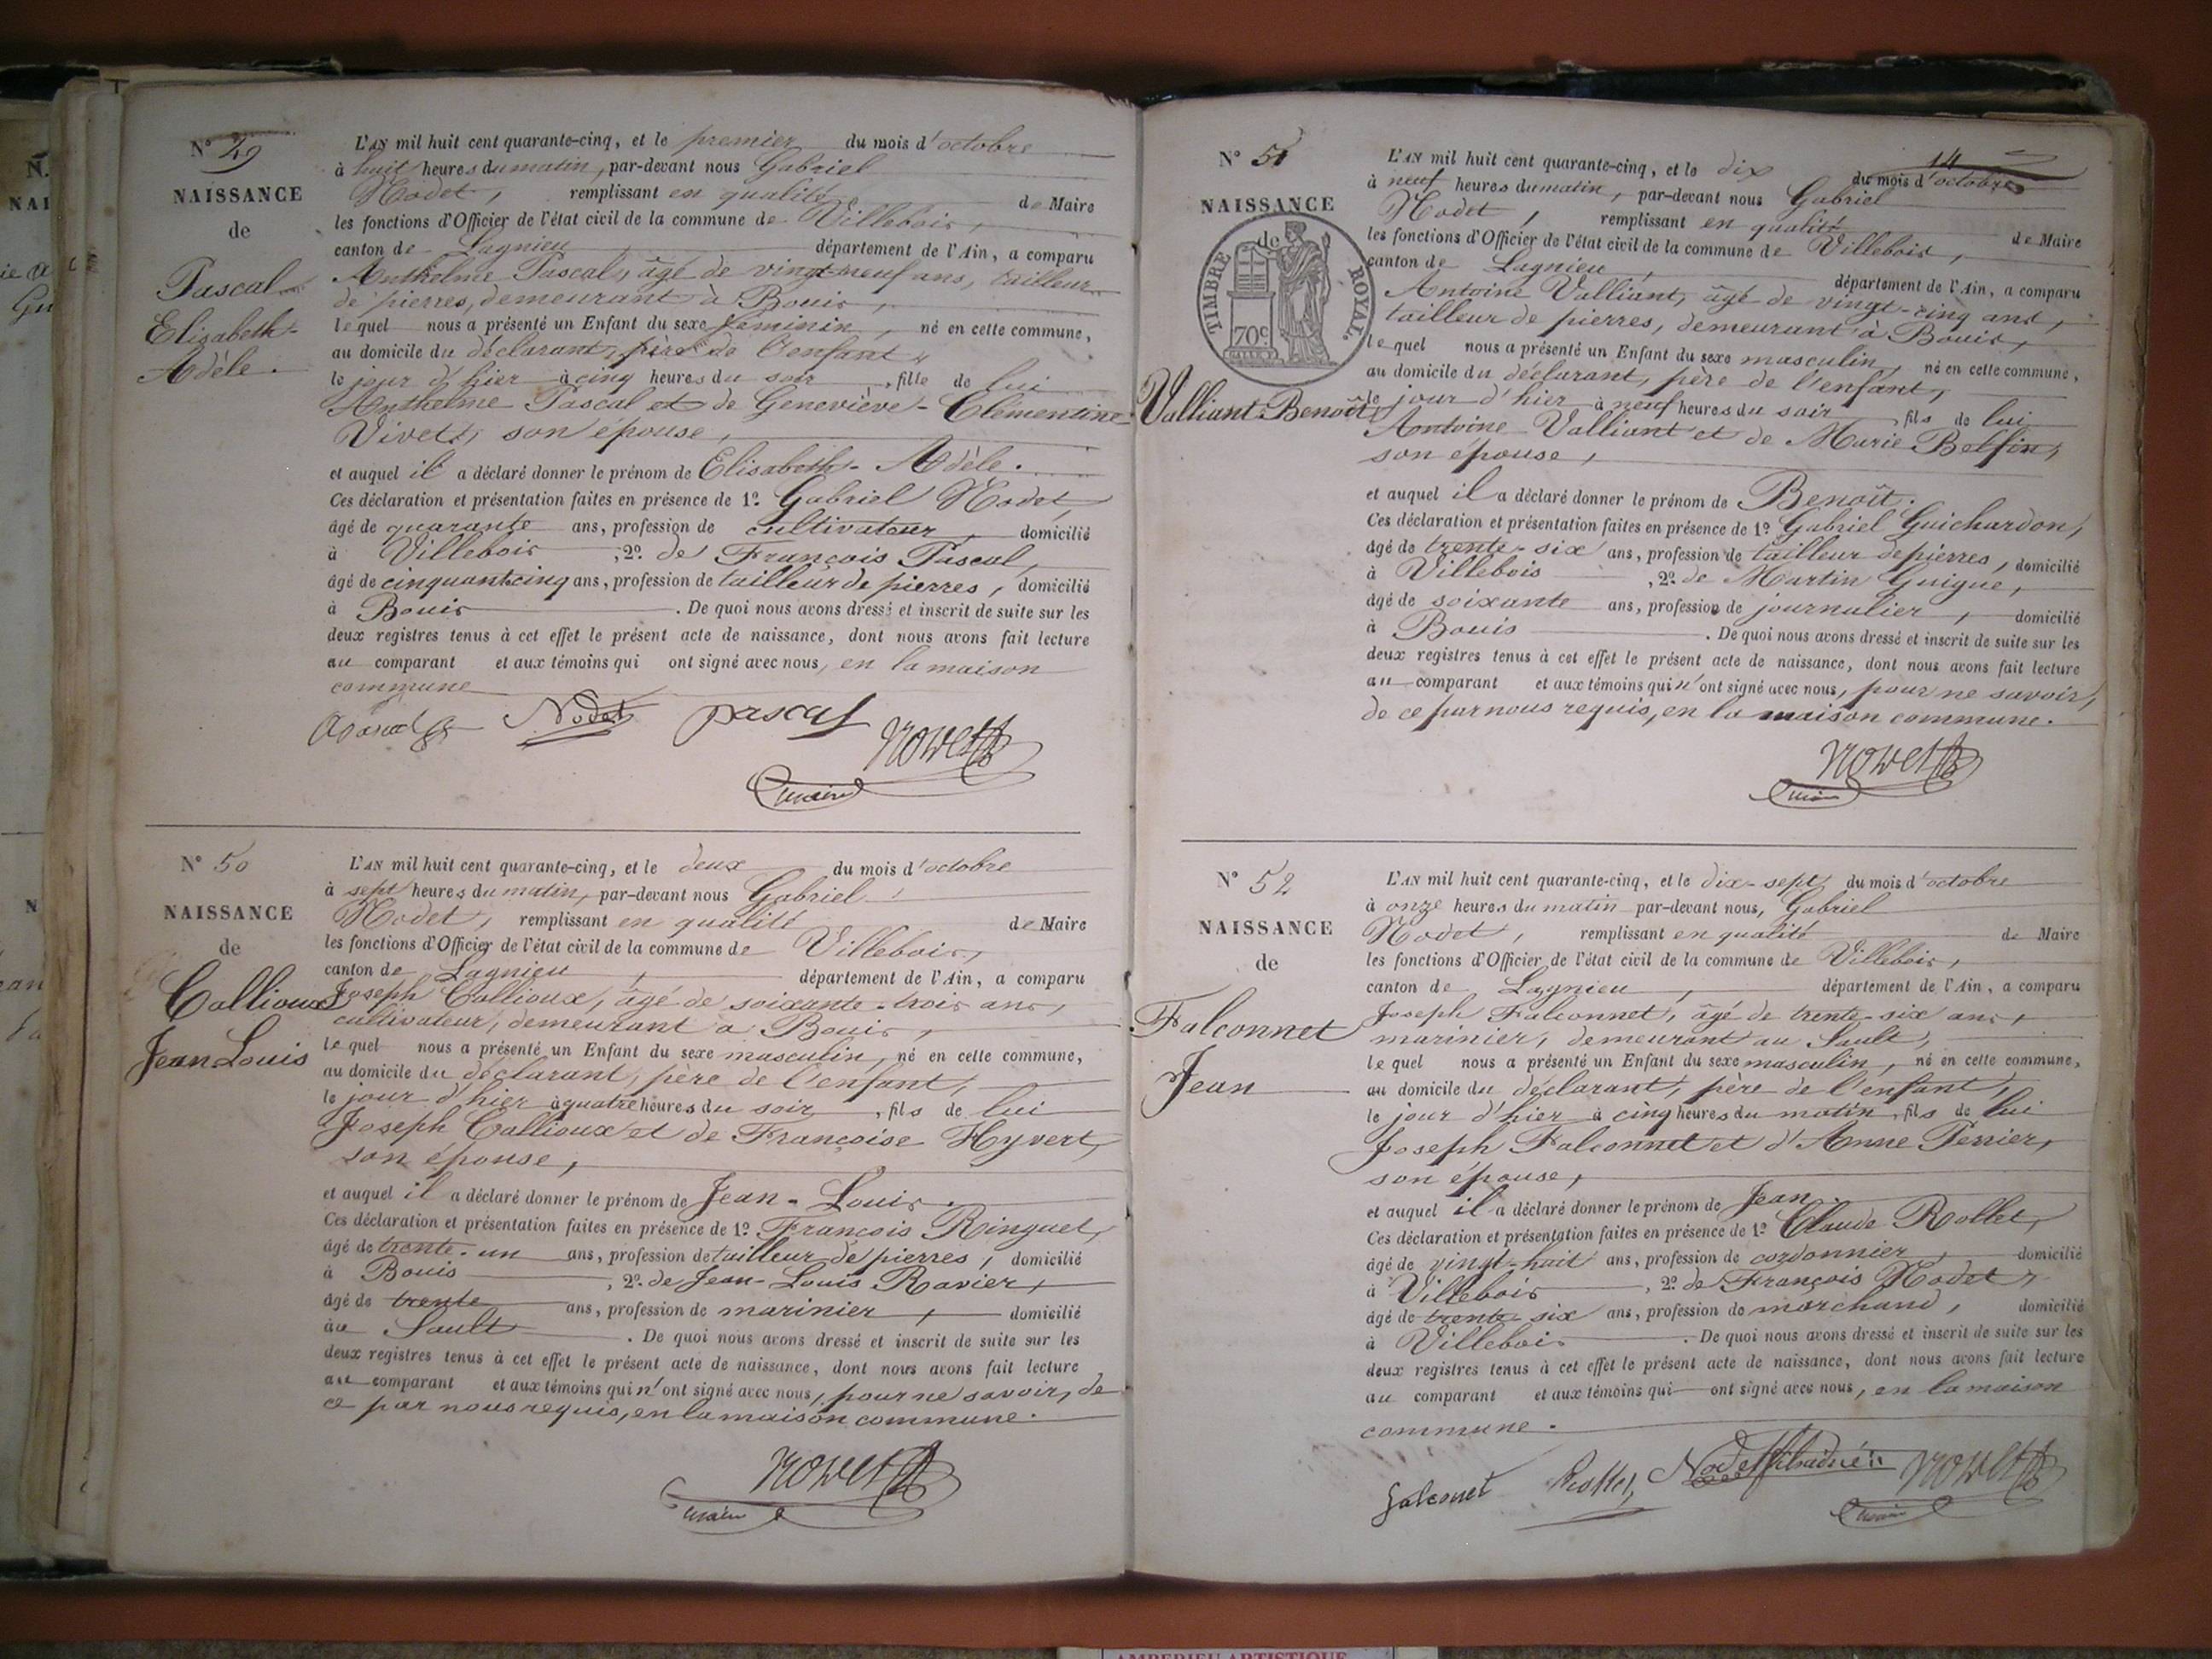 N° 49
NAISSANCE
de
Pascal
Elisabeth-
Adèle.
L'AN mil huit cent quarante-cinq, et le premier du mois d'octobre
à huit heures du matin, par-devant nous Gabriel
Nodet, remplissant en qualité de Maire
les fonctions d'Officier de l'état civil de la commune de Villebois,
canton de Lagnieu, département de l'Ain, a comparu
Anthelme Pascal, âgé de vingt-neuf ans, tailleur
de pierres, demeurant à Bouis,
lequel nous a présenté un Enfant du sexe féminin, né en cette commune,
au domicile du déclarant, père de l'enfant,
le jour d'hier à cinq heures du soir, fille de lui
Anthelme Pascal et de Geneviève-Clémentine
Vivet, son épouse,
et auquel il a déclaré donner le prénom de Elisabeth-Adèle.
Ces déclaration et présentation faites en présence de 1º. Gabriel Nodet,
âgé de quarante ans, profession de cultivateur, domicilié
à Villebois, 2º. de François Pascal,
âgé de cinquante cinq ans, profession de tailleur de pierres, domicilié
à Bouis. De quoi nous avons dressé et inscrit de suite sur les
deux registres tenus à cet effet le présent acte de naissance, dont nous avons fait lecture
au comparant et aux témoins qui ont signé avec nous, en la maison
commune
Nodet pascal Nodet
maire
N° 50
NAISSANCE
de
Callioux
Jean Louis
L'AN mil huit cent quarante-cinq, et le deux du mois d'octobre
à sept heures du matin, par-devant nous Gabriel
Nodet, remplissant en qualité de Maire
les fonctions d'Officier de l'état civil de la commune de Villebois,
canton de Lagnieu, département de l'Ain, a comparu
Joseph Callioux, âgé de soixante-trois ans,
cultivateur, demeurant à Bouis,
lequel nous a présenté un Enfant du sexe masculin, né en cette commune,
au domicile du déclarant, père de l'enfant,
le jour d'hier à quatre heures du soir, fils de lui
Joseph Callioux et de Françoise Hyvert,
son épouse,
et auquel il a déclaré donner le prénom de Jean-Louis.
Ces déclaration et présentation faites en présence de 1º. François Ringuet,
âgé de trente-un ans, profession de tailleur de pierres, domicilié
à Bouis, 2º. de Jean-Louis Ravier,
âgé de trente ans, profession de marinier, domicilié
au Sault. De quoi nous avons dressé et inscrit de suite sur les
deux registres tenus à cet effet le présent acte de naissance, dont nous avons fait lecture
au comparant et aux témoins qui n'ont signé avec nous, pour ne savoir, de
ce par nous requis, en la maison commune.
Nodet
maire
14
N° 51
NAISSANCE
de
TIMBRE ROYAL.
70c
Valliant Benoît,
L'AN mil huit cent quarante-cinq, et le dix du mois d'octobre
à neuf heures du matin, par-devant nous Gabriel
Nodet, remplissant en qualité de Maire
les fonctions d'Officier de l'état civil de la commune de Villebois,
canton de Lagnieu, département de l'Ain, a comparu
Antoine Valliant, âgé de vingt-cinq ans,
tailleur de pierres, demeurant à Bouis,
lequel nous a présenté un Enfant du sexe masculin, né en cette commune,
au domicile du déclarant, père de l'enfant,
le jour d'hier à neuf heures du soir, fils de lui
Antoine Valliant et de Marie Belfin,
son épouse,
et auquel il a déclaré donner le prénom de Benoît.
Ces déclaration et présentation faites en présence de 1º. Gabriel Guichardon,
âgé de trente-six ans, profession de tailleur de pierres, domicilié
à Villebois, 2º. de Martin Guigue,
âgé de soixante ans, profession de journalier, domicilié
à Bouis. De quoi nous avons dressé et inscrit de suite sur les
deux registres tenus à cet effet le présent acte de naissance, dont nous avons fait lecture
au comparant et aux témoins qui n'ont signé avec nous, pour ne savoir,
de ce par nous requis, en la maison commune.
Nodet
maire
N° 52
NAISSANCE
de
Falconnet
Jean
L'AN mil huit cent quarante-cinq, et le dix-sept du mois d'octobre
à onze heures du matin par-devant nous, Gabriel
Nodet, remplissant en qualité de Maire
les fonctions d'Officier de l'état civil de la commune de Villebois,
canton de Lagnieu, département de l'Ain, a comparu
Joseph Falconnet, âgé de trente-six ans,
marinier, demeurant au Sault,
lequel nous a présenté un Enfant du sexe masculin, né en cette commune,
au domicile du déclarant, père de l'enfant,
le jour d'hier à cinq heures du matin, fils de lui
Joseph Falconnet et d'Anne Perrier,
son épouse,
et auquel il a déclaré donner le prénom de Jean.
Ces déclaration et présentation faites en présence de 1º. Claude Rollet,
âgé de vingt-huit ans, profession de cordonnier, domicilié
à Villebois, 2º. de François Nodet,
âgé de trente-six ans, profession de marchand, domicilié
à Villebois. De quoi nous avons dressé et inscrit de suite sur les
deux registres tenus à cet effet le présent acte de naissance, dont nous avons fait lecture
au comparant et aux témoins qui ont signé avec nous, en la maison
commune.
falconet Rollet Nodet Nodet
maire
AMBERIEU ARTISTIQUE